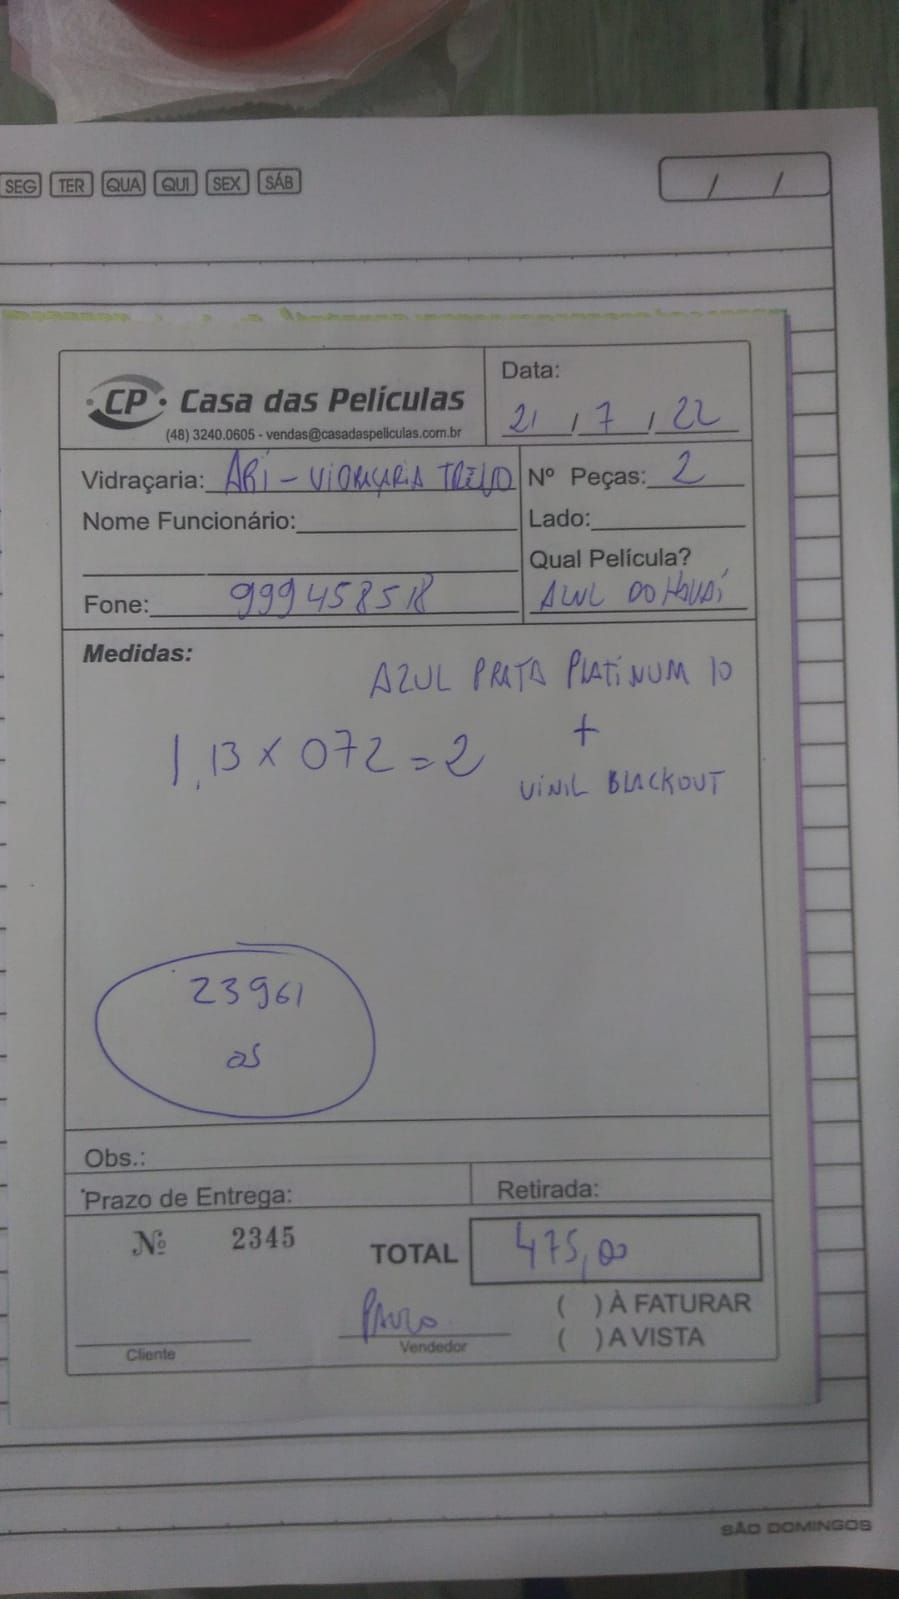 SEG TER QUA QUI SEX SÁB / /
CP Casa das Películas
(48) 3240.0605 - vendas@casadaspeliculas.com.br
Data:
21 / 7 / 22
Vidraçaria: ARI - VIDRAÇARIA TREVO
Nº Peças: 2
Nome Funcionário:
Lado:
Qual Película?
Fone: 999458518
AZUL DO HAVAÍ
Medidas:
AZUL PRATA PLATINUM 10
+
1,13 x 072 = 2
VINIL BLACKOUT
23961
OS
Obs.:
Prazo de Entrega:
Retirada:
Nº 2345
TOTAL 475,00
( ) À FATURAR
PAULO
( ) A VISTA
Cliente
Vendedor
SÃO DOMINGOS